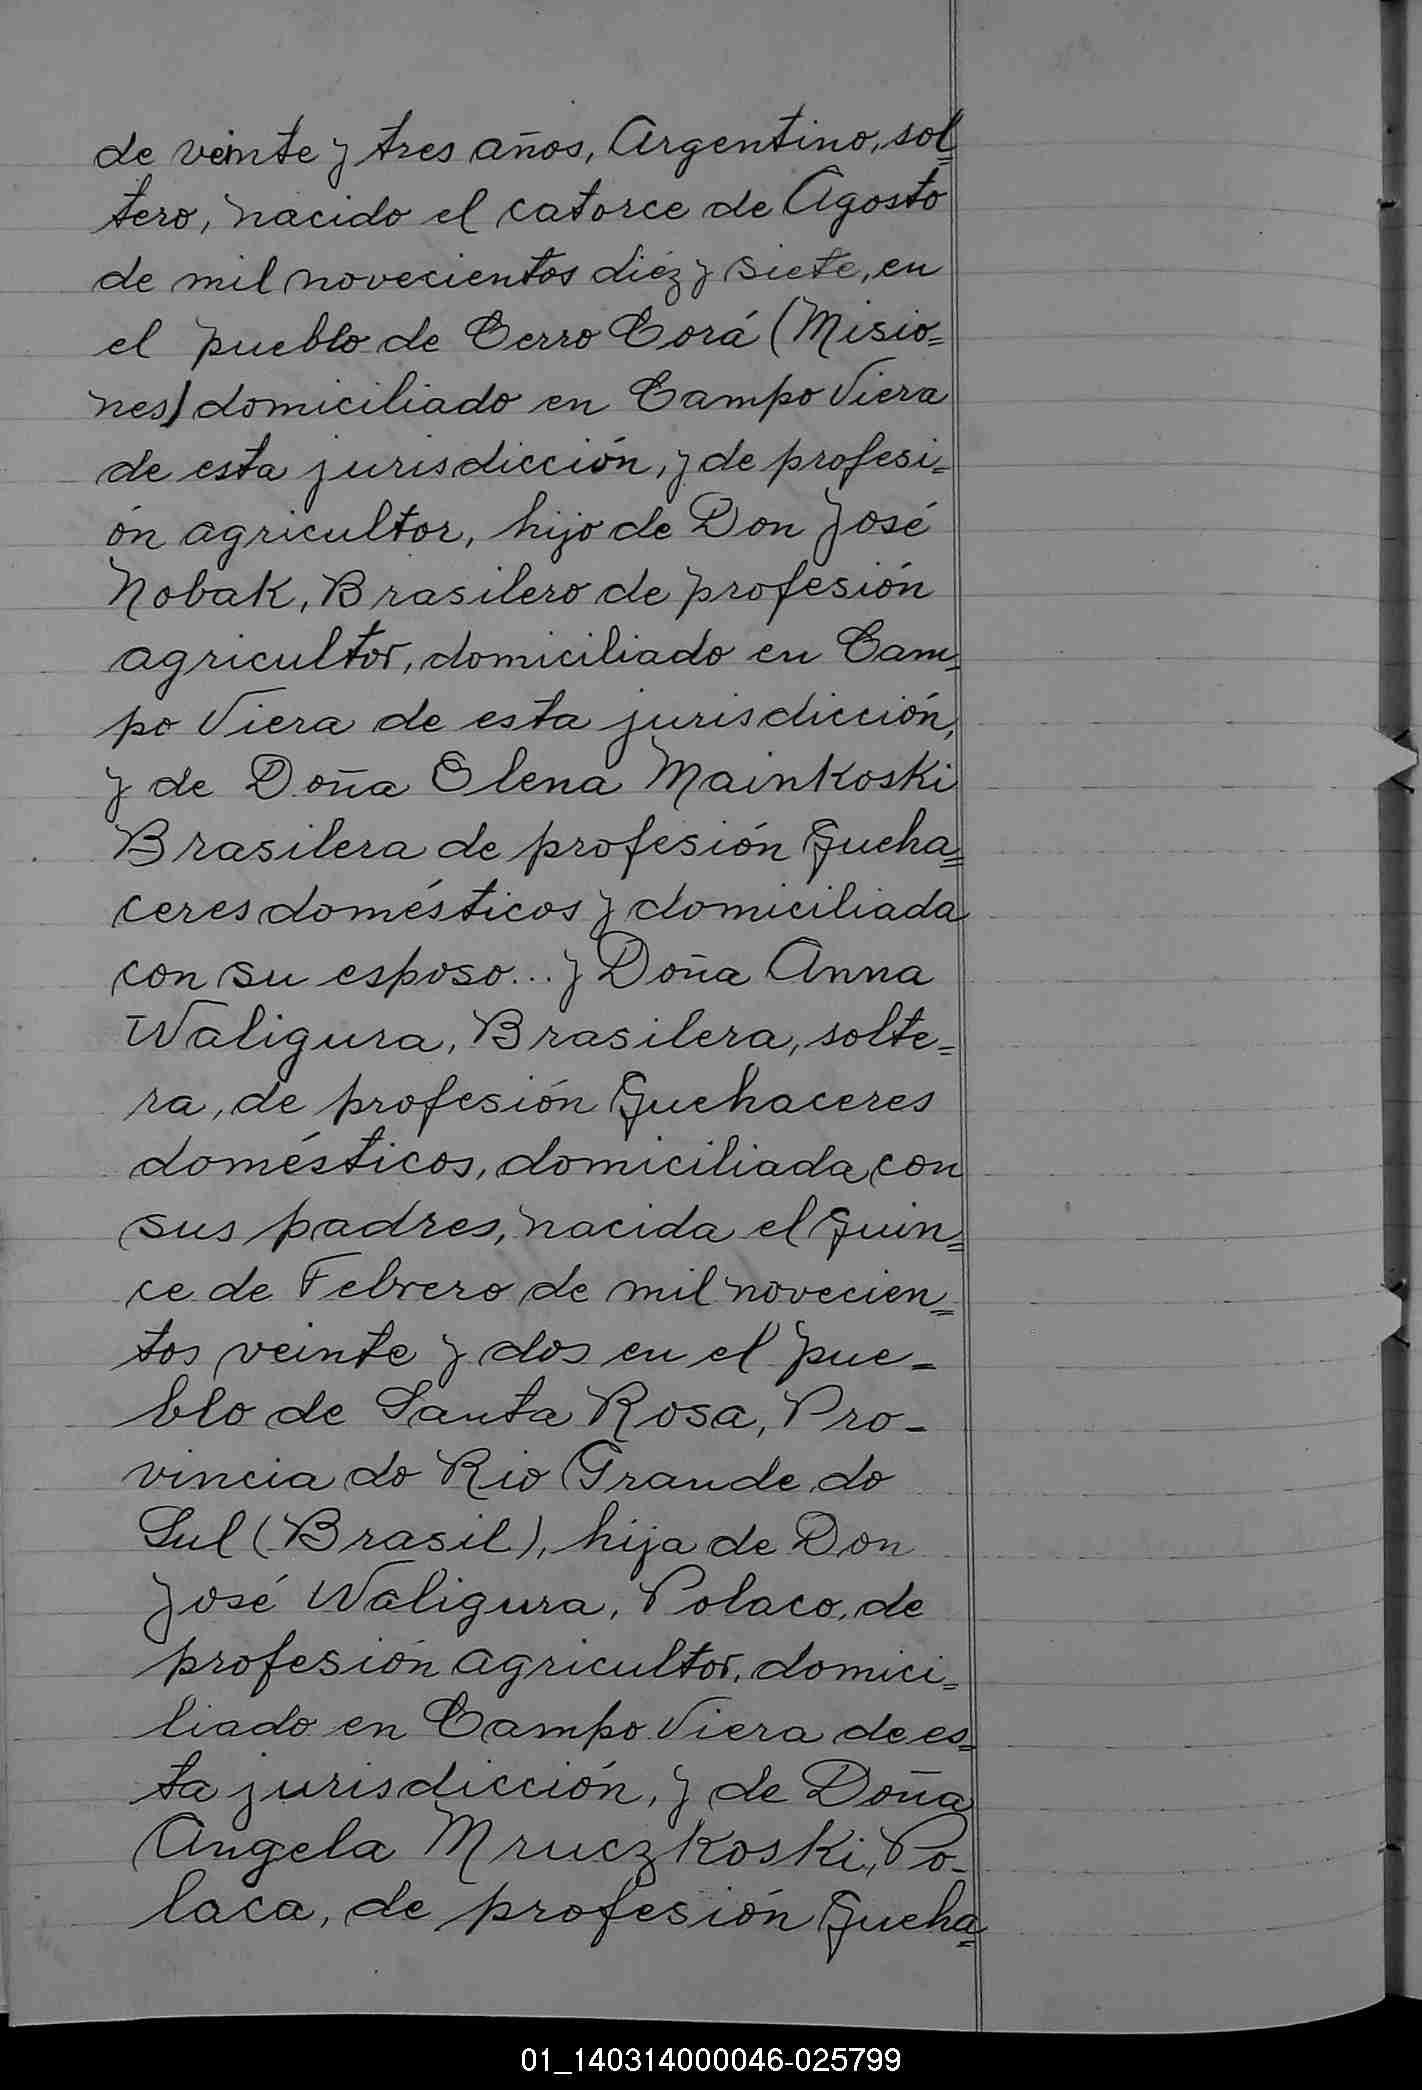 de veinte y tres años, Argentino, sol=
tero, nacido el catorce de Agosto
de mil novecientos diéz y siete, en
el pueblo de Cerro Corá (Misio=
nes) domiciliado en Campo Viera
de esta jurisdicción, y de profesi=
ón agricultor, hijo de Don José
Nobak, Brasilero de profesión
agricultor, domiciliado en Cam=
po Viera de esta jurisdicción,
y de Doña Olena Mainkoski
Brasilera de profesión Queha=
ceres domésticos y domiciliada
con su esposo... y Doña Anna
Waligura, Brasilera, solte=
ra, de profesión Quehaceres
domésticos, domiciliada con
sus padres, nacida el quin=
ce de Febrero de mil novecien=
tos veinte y dos en el pue-
blo de Santa Rosa, Pro-
vincia do Rio Grande do
Sul (Brasil), hija de Don
José Waligura, Polaco, de
profesión agricultor, domici=
liado en Campo Viera de es=
ta jurisdicción, y de Doña
Angela Mruczkoski, Po-
laca, de profesión Queha=
01_140314000046-025799